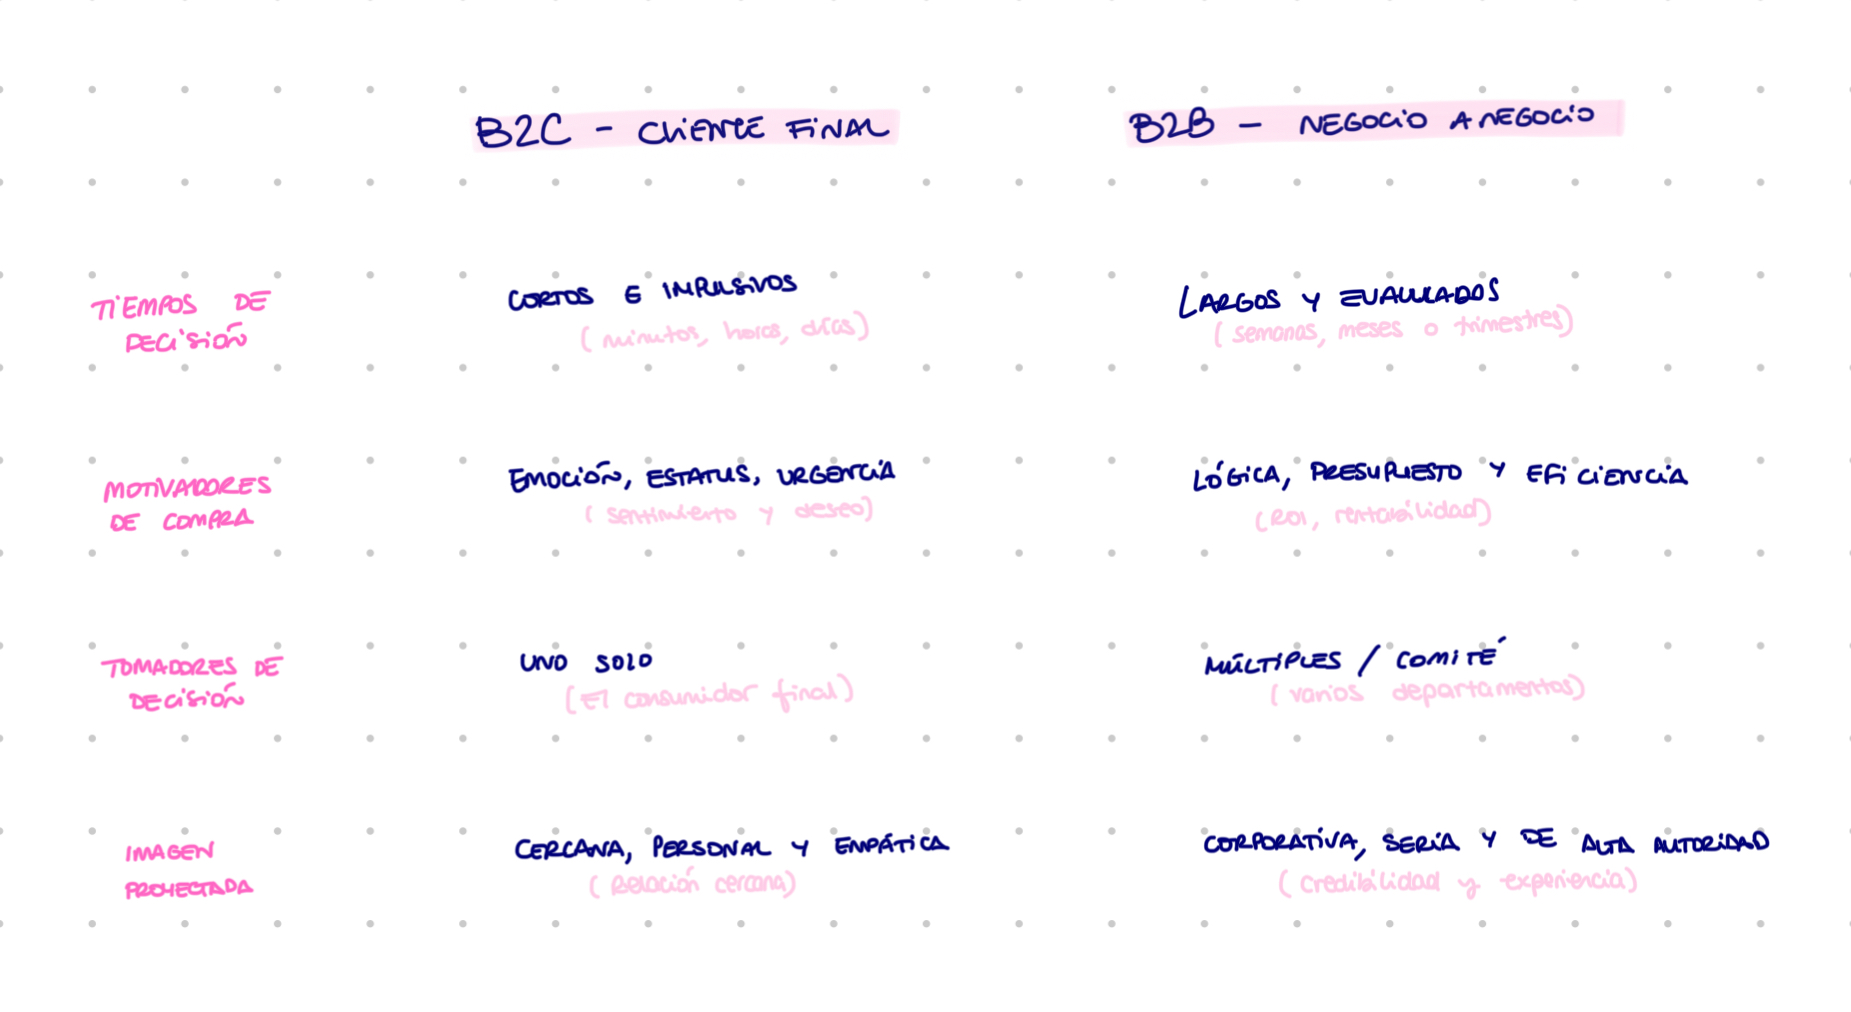 B2C - CLIENTE FINAL
B2B - NEGOCIO A NEGOCIO
TIEMPOS DE
DECISIÓN
CORTOS E IMPULSIVOS
(minutos, horas, días)
LARGOS Y EVALUADOS
(semanas, meses o trimestres)
MOTIVADORES
DE COMPRA
EMOCIÓN, ESTATUS, URGENCIA
(sentimiento y deseo)
LÓGICA, PRESUPUESTO Y EFICIENCIA
(ROI, rentabilidad)
TOMADORES DE
DECISIÓN
UNO SOLO
(El consumidor final)
MÚLTIPLES / COMITÉ
(varios departamentos)
IMAGEN
PROYECTADA
CERCANA, PERSONAL Y EMPÁTICA
(Relación cercana)
CORPORATIVA, SERIA Y DE ALTA AUTORIDAD
(credibilidad y experiencia)